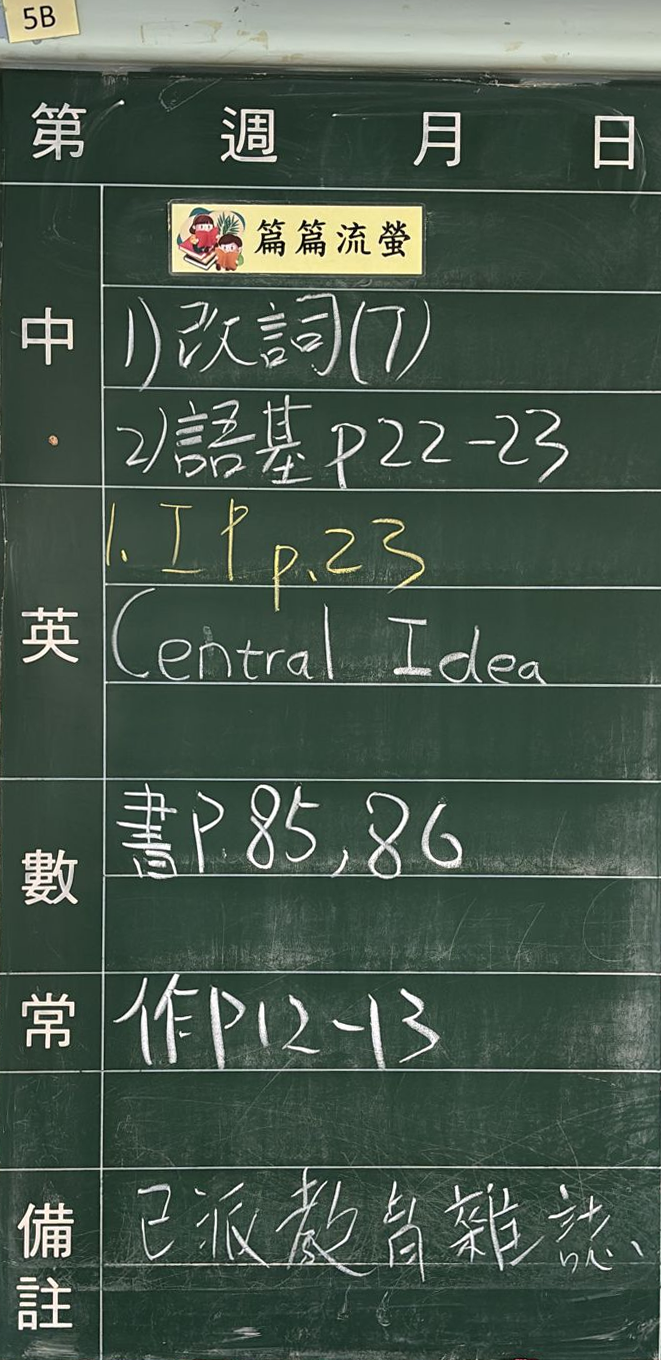 5B
第 週 月 日
篇篇流螢
中
1) 改詞(7)
2) 語基 p22-23
英
1. IP p.23
Central Idea
數
書P.85,86
常
作P12-13
備註
已派教育雜誌、